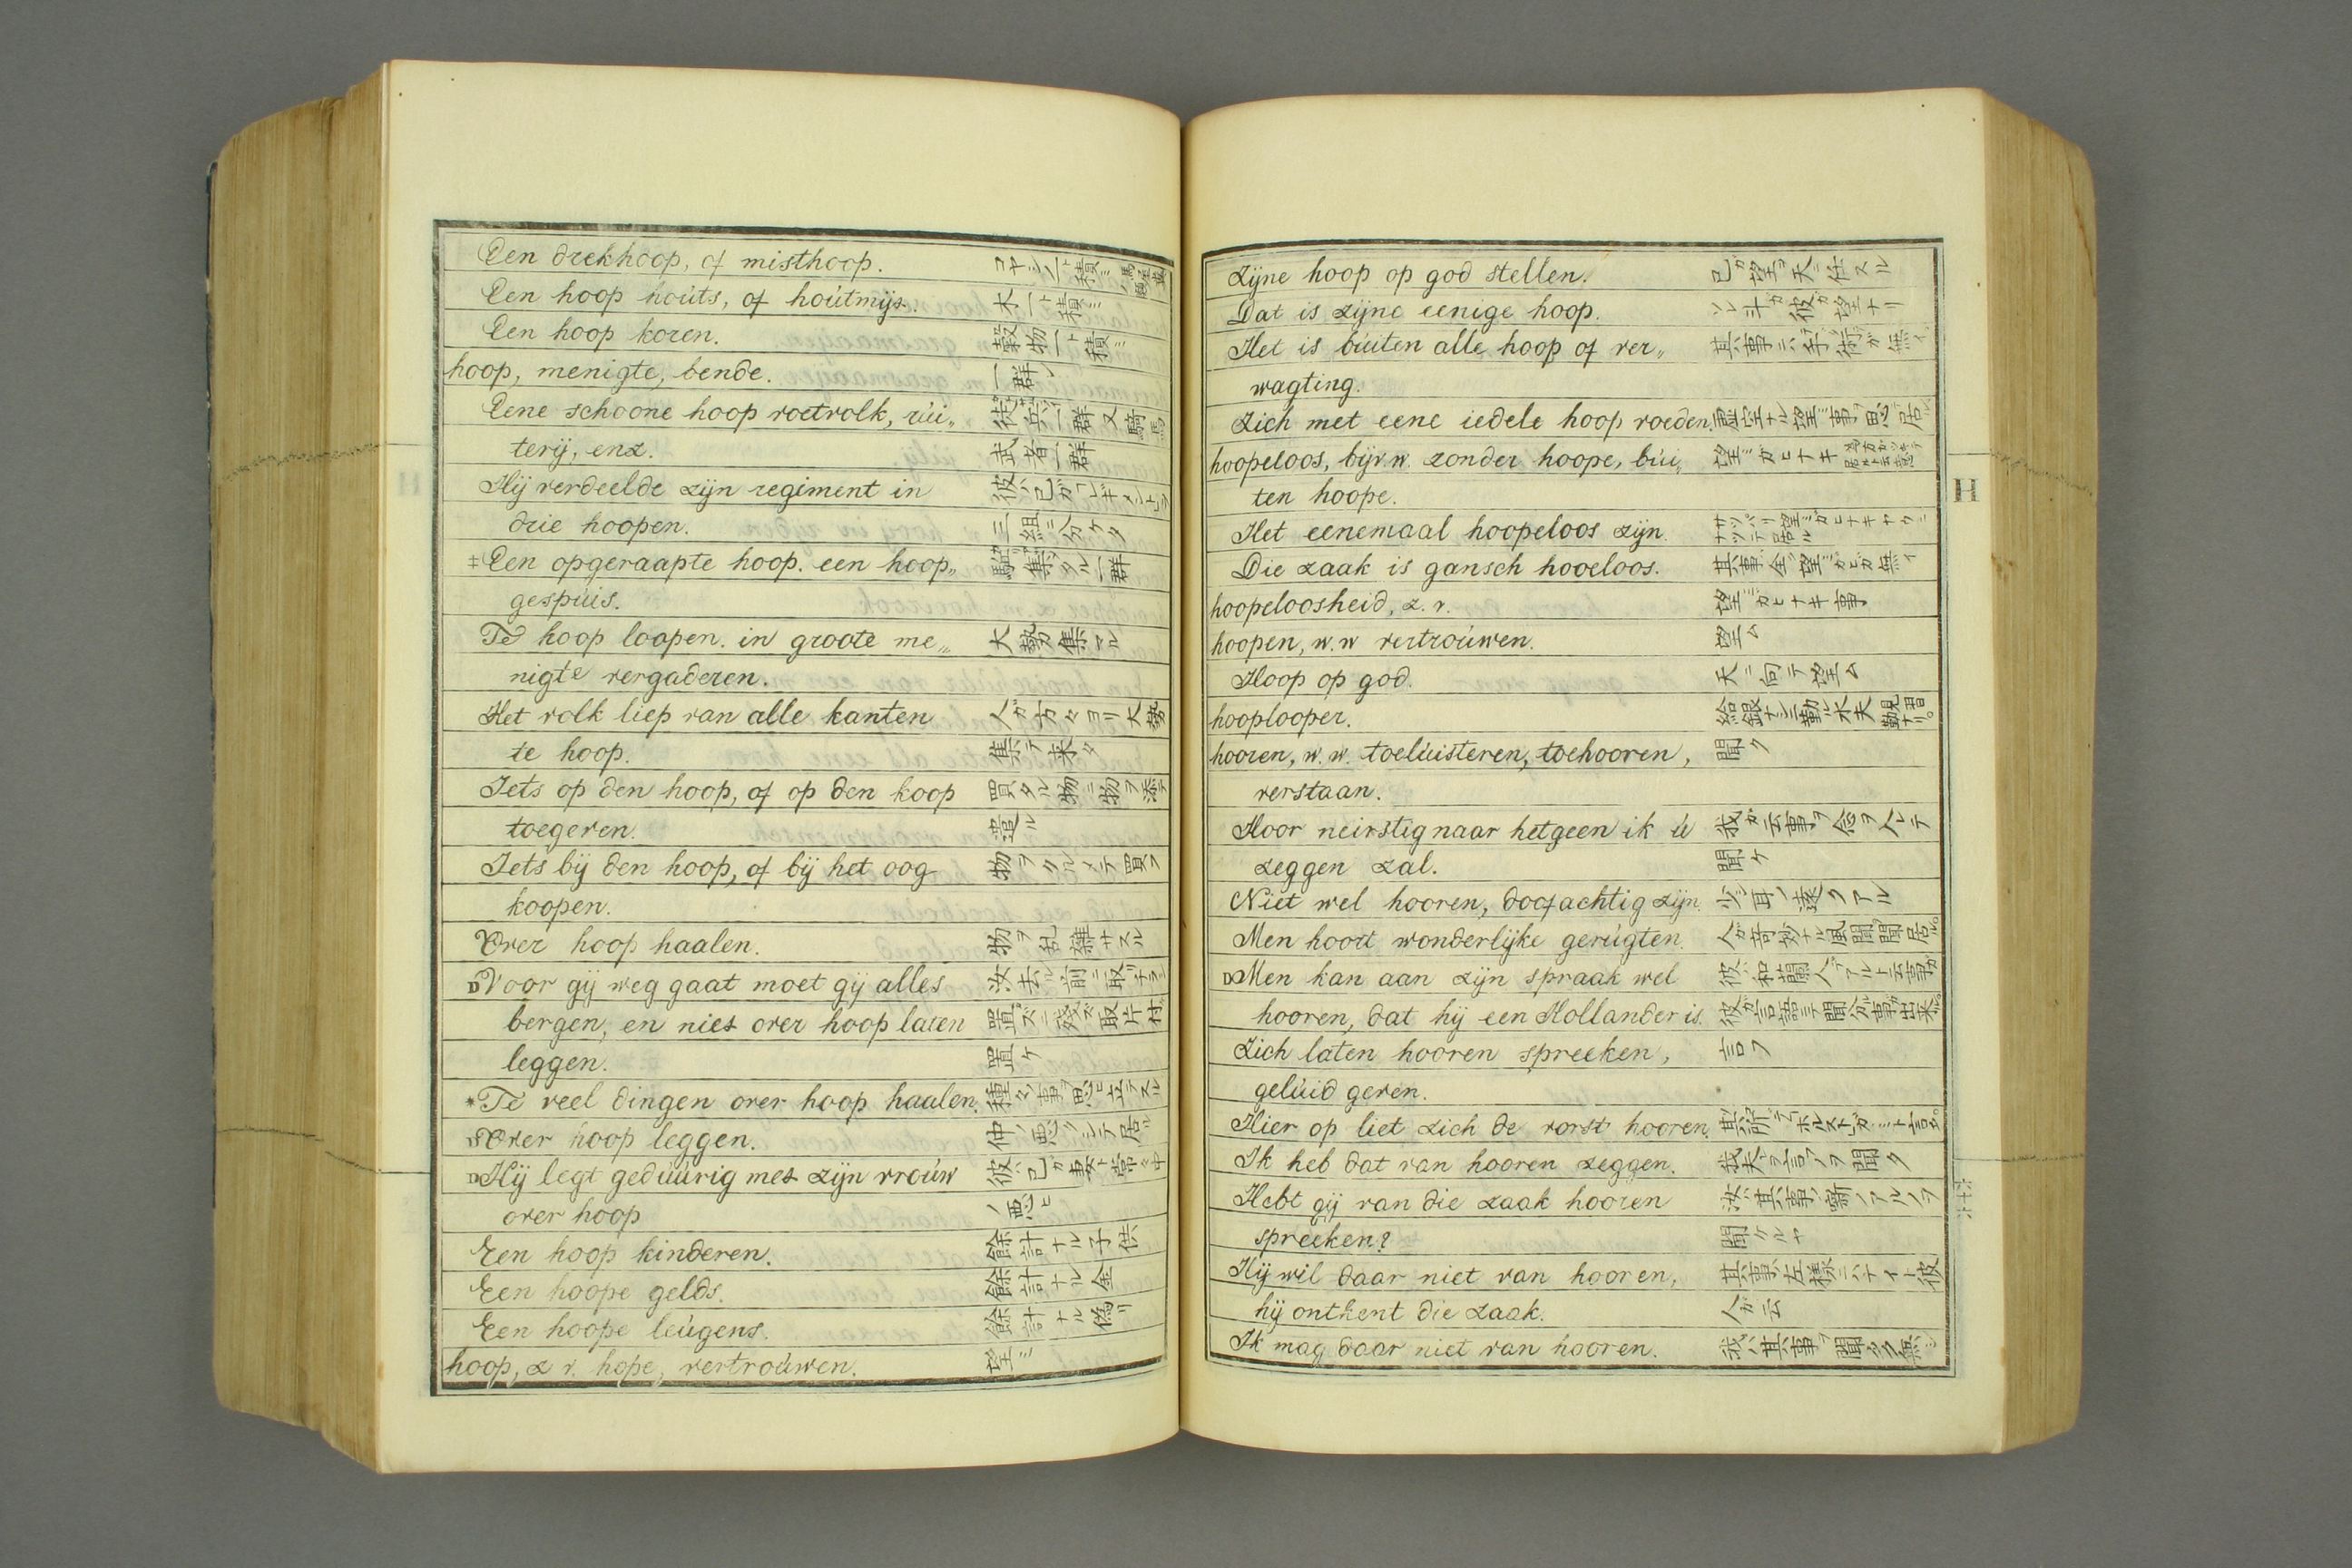 Een drekhoop, of misthoop. コヤシ一ト積ミ
Een hoop hoúts, of hoútmijs. 木一ト積ミ
Een hoop koren. 穀物一ト積ミ
hoop, menigte, bende. 一群
Eene schoone hoop voetvolk, rúi„ 徒兵一群又騎馬
terij, enz. 武者一群
Hij verdeelde zijn regiment in 彼ハ己ガレギメントヲ
drie hoopen. 三組ニ分ケタ
‡Een opgeraapte hoop. een hoop„ 駈集タル一群
gespúis.
Te hoop loopen. in groote me„ 大勢集マル
nigte vergaderen.
Het volk liep van alle kanten 人ガ方々ヨリ大勢
te hoop. 集テ来タ
Iets op den hoop, of op den koop 買タル物ニ物ヲ添テ
toegeven. 遣ル
Iets bij den hoop, of bij het oog 物ヲクルメテ買フ
koopen.
Over hoop haalen. 物ヲ乱雑サスル
DVoor gij weg gaat moet gij alles 汝去ル前ニ取チラシ
bergen, en niet over hoop laten 置ズニ残ズ取片付
leggen. 置ケ
*Te veel dingen over hoop haalen. 種々ノ事ヲ思ヒ立テスル
Over hoop leggen. 仲ノ悪クシテ居ル
DHij legt gedúúrig met zijn vroúw 彼ハ己ガ妻ト常ニ中
over hoop ノ悪ヒ
Een hoop kinderen. 餘計ナル子供
Een hoope gelds. 餘計ナル金
Een hoope leúgens. 餘計ナル偽リ
hoop, z v. hope, vertroúwen. 望ミ
Zijne hoop op god stellen. 己ガ望ヲ天ニ任スル
Dat is zijne eenige hoop. ソレ斗ガ彼ガ望ナリ
Het is búiten alle hoop of ver„ 其事ニハ手術ガ無イ
wagting.
Zich met eene iedele hoop voeden. 虚空ナル望ミ事ヲ思居ル
hoopeloos, bijv. w. zonder hoope, búi„ 望ミガヒナキ
ten hoope.
Het eenemaal hoopeloos zijn. サッパリ望ミガヒナキヤウニナッテ居ル
Die zaak is gansch hooeloos. 其事ハ全ク望ミガヒガ無イ
hoopeloosheid, z. v. 望ミガヒナキ事
hoopen, w. w vertroúwen. 望ム
Hoop op god. 天ニ向テ望ム
hooplooper. 給銀ナシニ勤ル水夫 見習勤ナリ。
hooren, w. w. toelúisteren, toehooren, 聞ク
verstaan.
Hoor neirstig naar hetgeen ik ú 我ガ云事ヲ念ヲ入レテ
zeggen zal. 聞ケ
Niet wel hooren, doofachtig zijn. 少シ耳ノ遠クアル
Men hoort wonderlijke gerúgten. 人ガ奇妙ナル風聞聞居ル。
DMen kan aan zijn spraak wel 彼ハ和蘭人デアルト云事ガ
hooren, dat hij een Hollander is. 彼ガ言語ニテ聞分ル事ガ出来ル。
Zich laten hooren spreeken, 言フ
gelúid geven.
Hier op liet zich de vorst hooren. 其所デホルストガ
Ik heb dat van hooren zeggen. 我夫ヲ言フヲ聞ク
Hebt gij van die zaak hooren 汝ハ其事ノ噺ノアルノヲ
spreeken? 聞ケルヤ
Hij wil daar niet van hooren, 其事ハ左様ニハナイト彼
hij ontkent die zaak. 人ガ云
Ik mag daar niet van hooren. 我ハ其事ヲ聞タク無シ
H